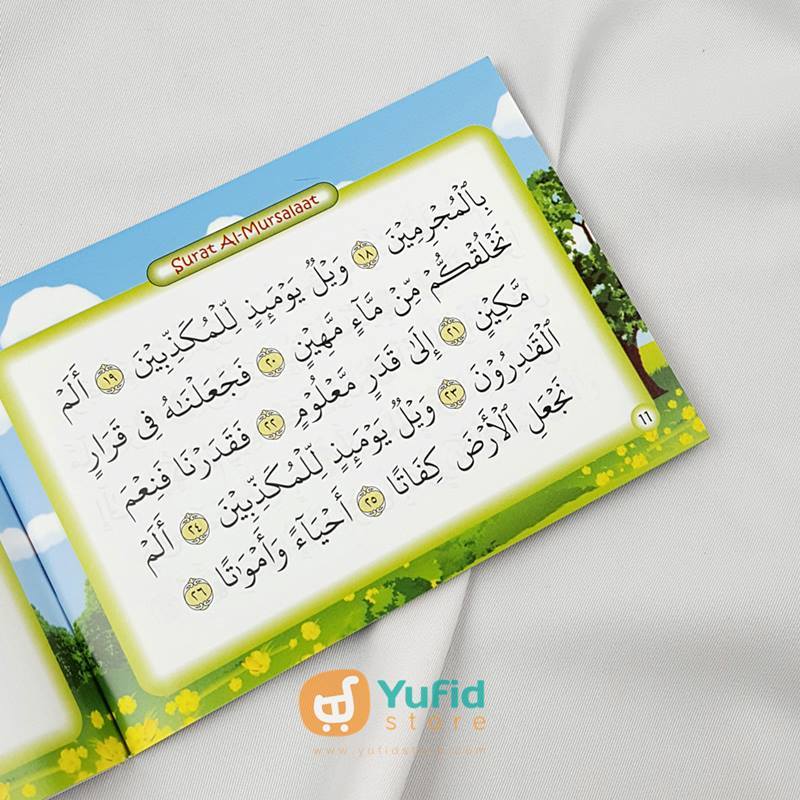 Surat Al-Mursalaat
بِالْمُجْرِمِيْنَ ١٨ وَيْلٌ يَوْمَئِذٍ لِّلْمُكَذِّبِيْنَ ١٩ أَلَمْ
نَخْلُقْكُّمْ مِّنْ مَّآءٍ مَّهِيْنٍ ٢٠ فَجَعَلْنٰهُ فِى قَرَارٍ
مَّكِيْنٍ ٢١ إِلٰى قَدَرٍ مَّعْلُوْمٍ ٢٢ فَقَدَرْنَا فَنِعْمَ
الْقٰدِرُوْنَ ٢٣ وَيْلٌ يَوْمَئِذٍ لِّلْمُكَذِّبِيْنَ ٢٤ أَلَمْ
نَجْعَلِ الْأَرْضَ كِفَاتًا ٢٥ أَحْيَآءً وَأَمْوٰتًا ٢٦
١١
Yufid
store
www.yufidstore.com